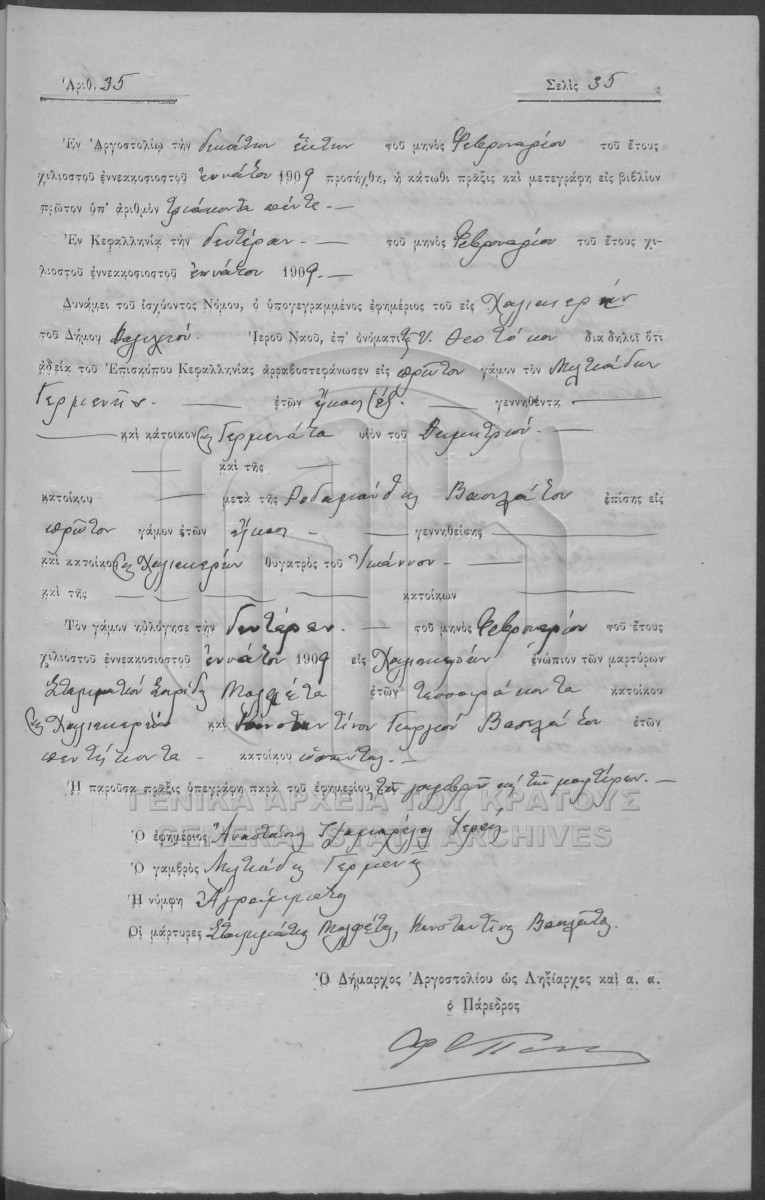 Ἀριθ. 35 Σελὶς 35
Ἐν Ἀργοστολίῳ τὴν δεκάτην ἕκτην τοῦ μηνὸς Φεβρουαρίου τοῦ ἔτους
χιλιοστοῦ ἐννεακοσιοστοῦ ἐννάτου 1909 προσήχθη, ἡ κάτωθι πρᾶξις καὶ μετεγράφη εἰς βιβλίον
πρῶτον ὑπ' ἀριθμὸν τριάκοντα πέντε. —
Ἐν Κεφαλληνίᾳ τὴν δευτέραν. — τοῦ μηνὸς Φεβρουαρίου τοῦ ἔτους χι-
λιοστοῦ ἐννεακοσιοστοῦ ἐννάτου 1909. —
Δυνάμει τοῦ ἰσχύοντος Νόμου, ὁ ὑπογεγραμμένος ἐφημέριος τοῦ εἰς Χαλικερὴν
τοῦ Δήμου Ἱεροῦ Ναοῦ, ἐπ' ὀνόματι Θεοτόκου δια δηλοῖ ὅτι
ἀδείᾳ τοῦ Ἐπισκόπου Κεφαλληνίας ἀρραβοστεφάνωσεν εἰς πρῶτον γάμον τὸν Μιλτιάδην
Γερμενῆν. — ἐτῶν εἴκοσι ἕξ. — γεννηθέντα —
— καὶ κάτοικον εἰς Γερμενάτα υἱὸν τοῦ Δημητρίου. —
— καὶ τῆς —
κατοίκου — μετὰ τῆς Βασιλάτου ἐπίσης εἰς
πρῶτον γάμον ἐτῶν εἴκοσι — γεννηθείσης —
καὶ κατοίκου εἰς Χαλικερήν θυγατρὸς τοῦ Ἰωάννου. —
καὶ τῆς — κατοίκων —
Τὸν γάμον ηὐλόγησε τὴν δευτέραν. — τοῦ μηνὸς Φεβρουαρίου τοῦ ἔτους
χιλιοστοῦ ἐννεακοσιοστοῦ ἐννάτου 1909 εἰς Χαλικερήν ἐνώπιον τῶν μαρτύρων
Σταματίου Σπυρίδ. Μολφέτα ἐτῶν τεσσαράκοντα κατοίκου
εἰς Χαλικερήν καὶ Κωνσταντίνου Γεωργίου Βασιλάτου ἐτῶν
πεντήκοντα — κατοίκου ὡσαύτως. —
Ἡ παροῦσα πρᾶξις ὑπεγράφη παρὰ τοῦ ἐφημερίου, τοῦ γαμβροῦ καὶ τῶν μαρτύρων. —
ΓΕΝΙΚΑ ΑΡΧΕΙΑ ΤΟΥ ΚΡΑΤΟΥΣ
GENERAL STATE ARCHIVES
Ὁ ἐφημέριος Ἀναστάσιος Ἱερεύς
Ὁ γαμβρὸς Μιλτιάδης Γερμενῆς
Ἡ νύμφη Ἀγράμματος
Οἱ μάρτυρες Σταμάτιος Μολφέτας, Κωνσταντῖνος Βασιλάτος.
Ὁ Δήμαρχος Ἀργοστολίου ὡς Ληξίαρχος καὶ α. α.
ὁ Πάρεδρος